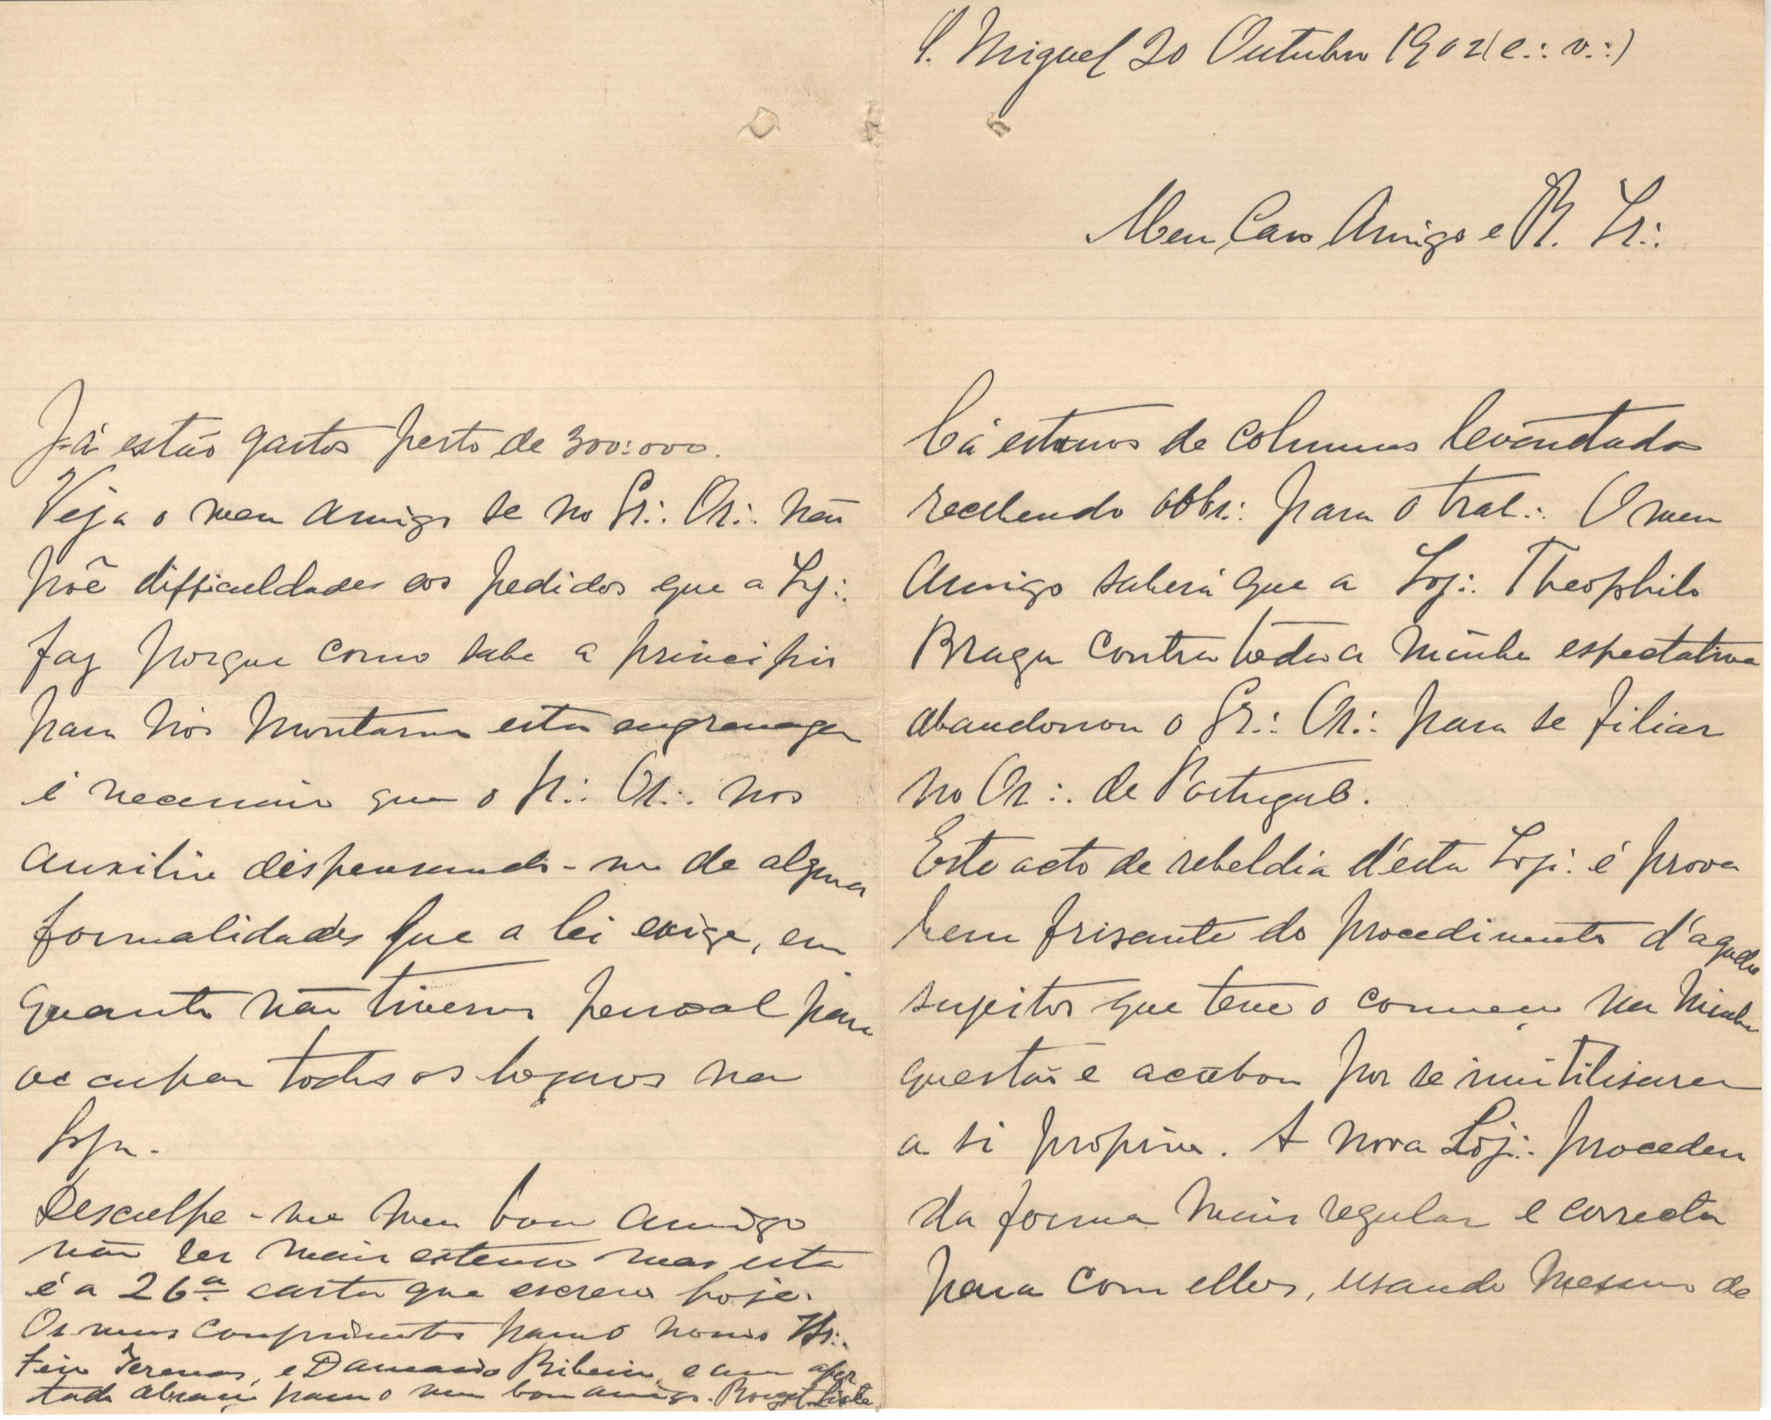 S. Miguel 20 Outubro 1902 (e∴ v∴)
Meu Caro Amigo e R. Ir∴
Cá estamos de columnas levantadas
recebendo obbr∴ para o trab∴ O meu
Amigo saberá que a Loj∴ Theophilo
Braga contra toda a minha espectativa
abandonou o Gr∴ Or∴ para se filiar
no Or∴ de Portugal.
Este acto de rebeldia d'esta Loj∴ é prova
bem frisante do procedimento d'aquelles
sugeitos que teve o começo na minha
questão e acabou por se inutilisarem
a si proprios. A nova Loj∴ procedeu
da forma mais regular e correcta
para com elles, usando mesmo de
Já estão gastos perto de 300:000.
Veja o meu amigo se no Gr∴ Or∴ não
põe difficuldades aos pedidos que a Loj∴
faz porque como sabe a principio
para nós montarmos esta engrenagem
é necessario que o Gr∴ Or∴ nos
auxilie dispensando-nos de algumas
formalidades que a lei exige, em
quanto não tivermos pessoal para
occupar todos os logares na
Loja.
Desculpe-me meu bom amigo
não ser mais extenso mas esta
é a 26ª carta que escrevo hoje.
Os meus comprimentos para o nosso Ir∴
Feio Terenas, e Damasio Ribeiro, e um aper
tado abraço para o meu bom amigo. Rouget Lisle